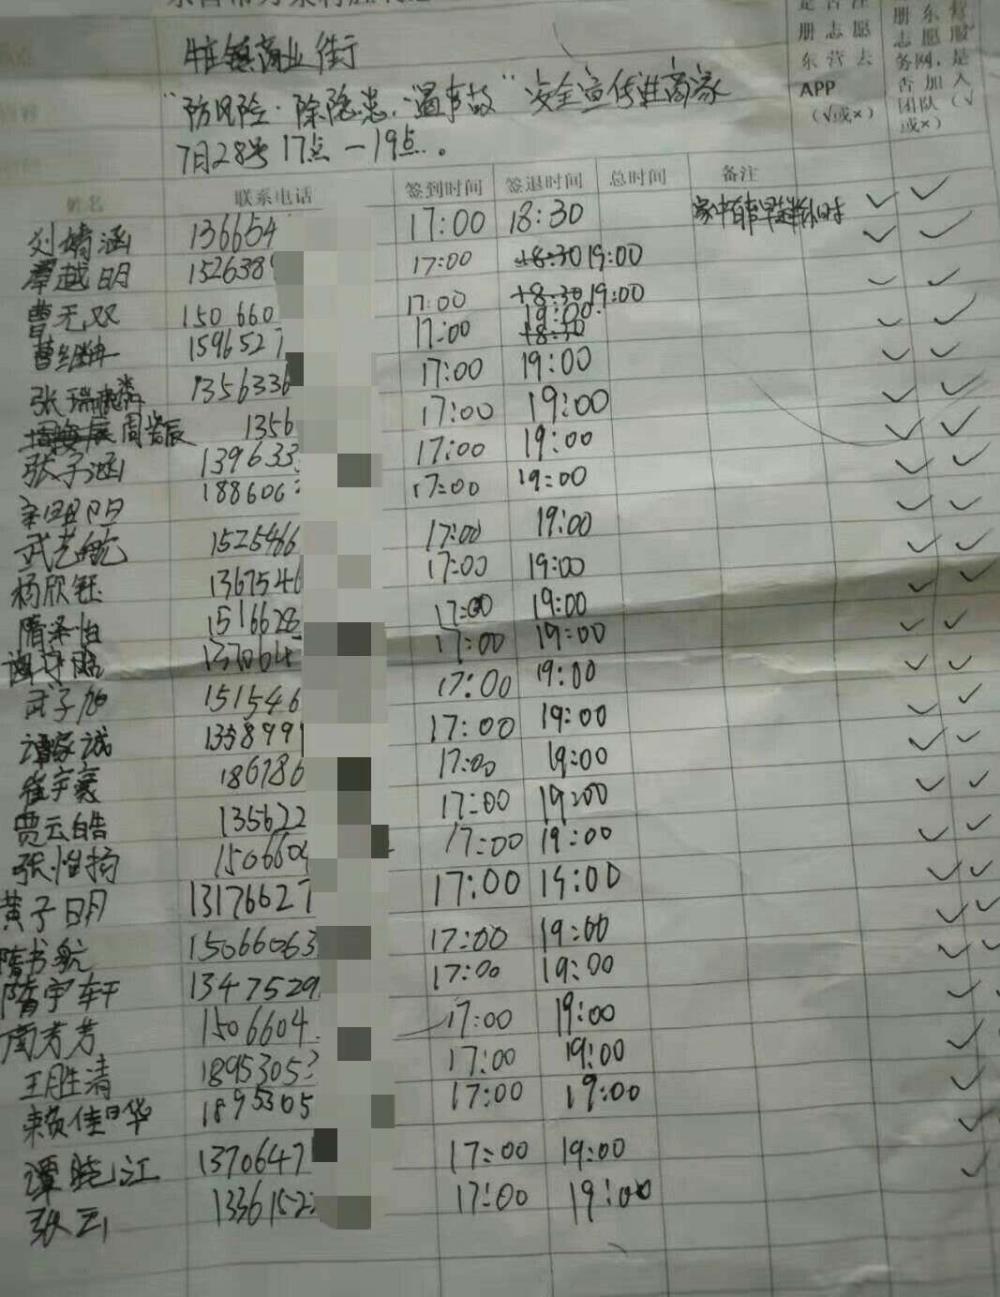 商业街
"防风险·除隐患·遏事故"安全宣传进商家
7月28号17点—19点。
是否注册志愿东营去APP（√或×）
册东营志愿服务网,是否加入团队（√或×）
姓名 联系电话 签到时间 签退时间 总时间 备注
刘婧涵 136654 17:00 18:30
覃越明 152638 17:00 18:30 19:00
曹无双 150 660 17:00 18:30 19:00
1596527 17:00 19:00. 18:30
张瑞麟 1356336 17:00 19:00
周岩辰 1356 17:00 19:00
张子涵 139633 17:00 19:00
188606 17:00 19:00
武艺航 1525466 17:00 19:00
杨欣钰 1367546 17:00 19:00
隋泽怡 1516628 17:00 19:00
137064 17:00 19:00
武子旭 151546 17:00 19:00
谭家诚 1358999 17:00 19:00
崔宇豪 186786 17:00 19:00
贾云皓 135622 17:00 19:00
张惟扬 1506604 17:00 19:00
黄子明 13176627 17:00 19:00
隋书航 15066063 17:00 19:00
隋宇轩 1347529 17:00 19:00
南芳芳 1506604 17:00 19:00
王胜清 1895305 17:00 19:00
赖佳晔 1895305 17:00 19:00
谭晓江 1370647 17:00 19:00
张云 1336152 17:00 19:00